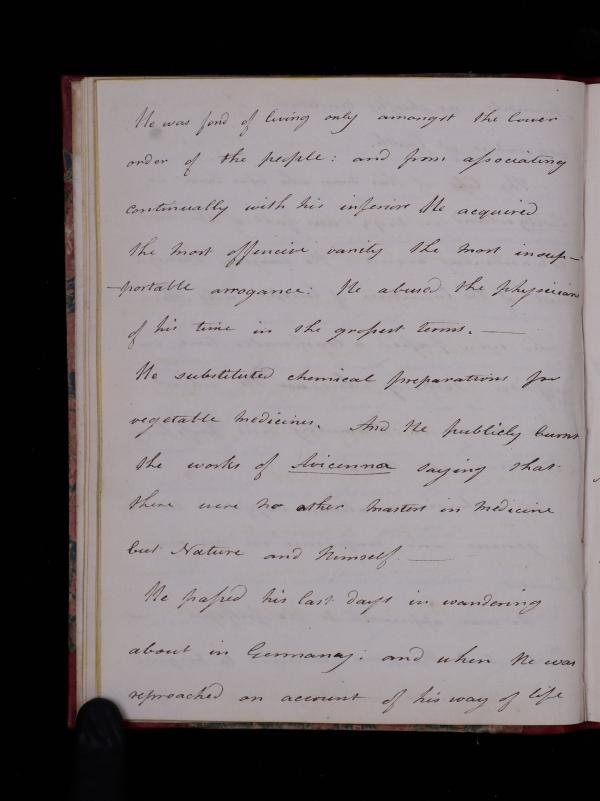 He was fond of living only amongst the lower
order of the people: and from aſsociating
continually with his inferiors He acquired
the most offencive vanity the most insup-
-portable arrogance: He abused the physicians
of his time in the groſsest terms. —
He substituted chemical preparations for
vegetable medicines. And He publicly burnt
the works of Avicenna saying that
there were no other masters in medicine
but Nature and Himself —
He paſsed his last days in wandering
about in Germany: and when He was
reproached on account of his way of life